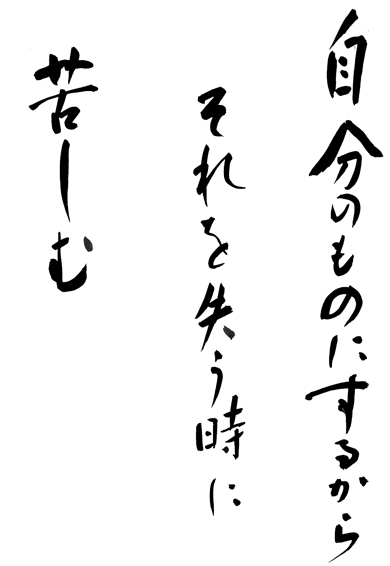 自分のものにするから
それを失う時に
苦しむ